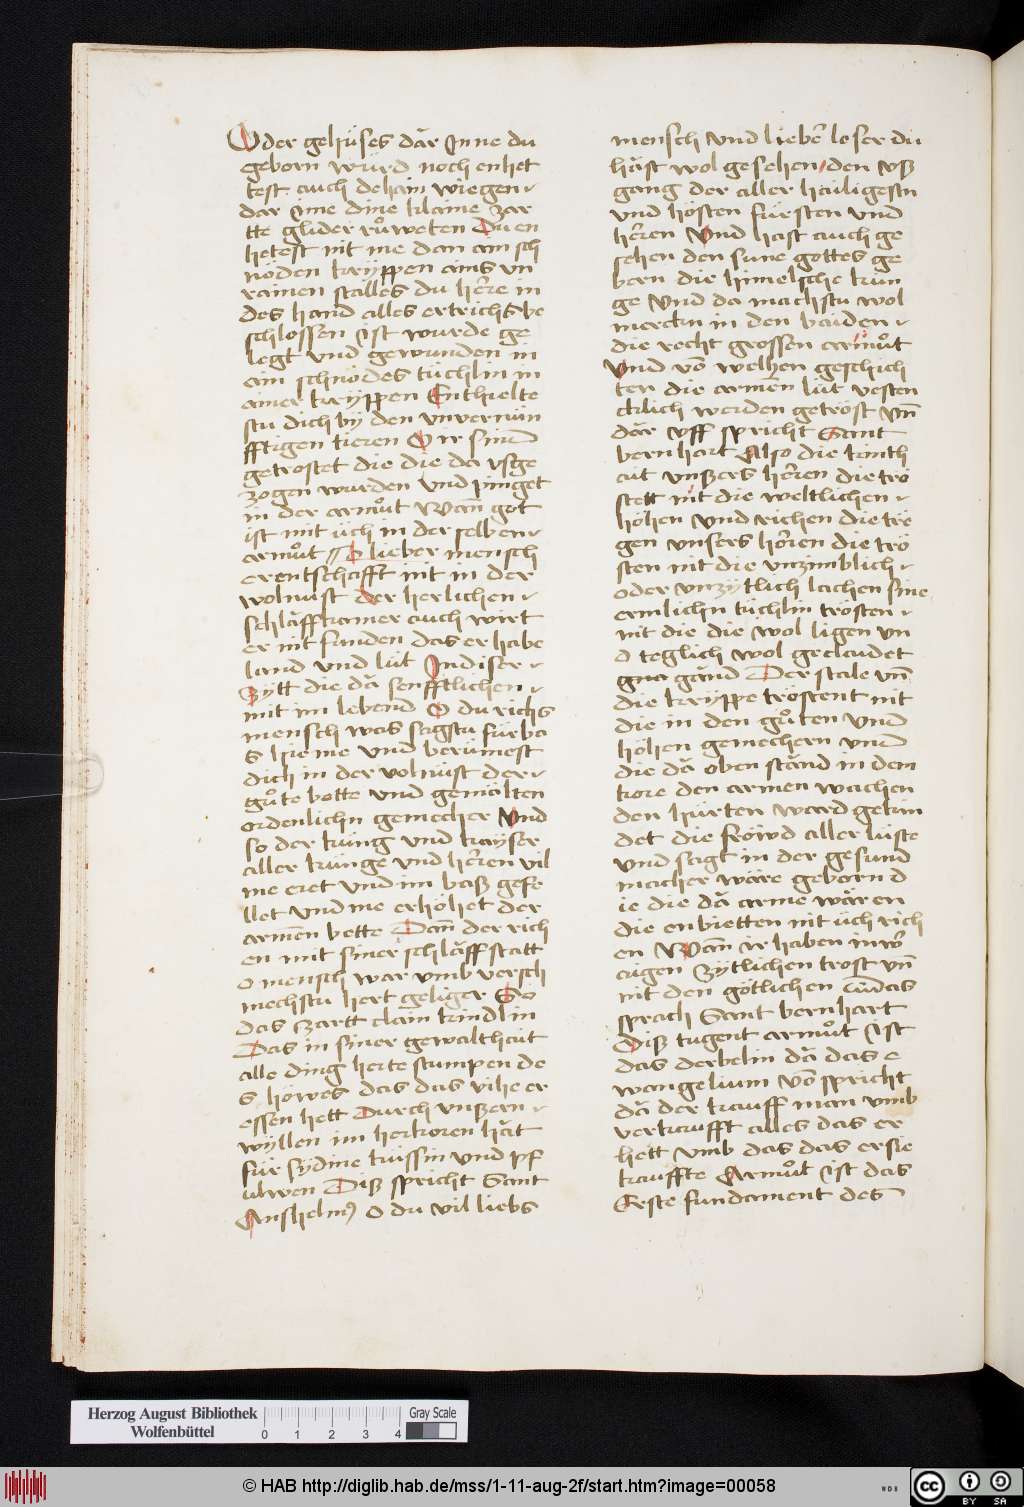 Oder gehüses dar Inne du
geborn wurd noch enhet
test auch dehain wiegen
dar Inne dine klaine zar
tte glider růweten Du en
hetest nit me dan ain sch
nöden kryppen ains vn
rainen stalles du herre in
des hand alles ertrichs be
schlossen ist wurde ge
legt vnd gewunden in
ain schnödes tüchlin in
ainer kryppen Enthielte
stu dich by den vnvernün
fftigen tieren O ir sind
getrostet die die da vsge
zogen wurden vnd pinget
in der armůt Wan̄ got
ist mit üch in der selben
armůt O lieber mensch
er entschafft nit in der
wolnust der herlichen
schlaffkamer auch wirt
er nit funden das er habe
land vnd lüt In diser
zytt die da senfftlichen
mit im lebend O du richs
mensch was sagstu fürba
s hie me vnd berümest
dich in der volnüst der
gůte botte vnd gemälten
ordenlichn gemecher Vnd
so der küng vnd kayser
aller künge vnd herren vil
me eret vnd im basz gefe
llet vnd me erhöhet der
armen bette Dan̄ der rich
en mit siner schlaffstatt
o mensch war vmb versch
mechstu hert geliger So
das zartt clain kindlin
Das in siner gewalthait
alle ding herte stumpen de
s höwes das das vihe er
essen hett Durch vnszern
wyllen im herkoren hät
für sydine küssin vnd pf
ulwen Disz spricht Sant
Anshelm9 O du vil liebs
mensch vnd lieber leser du
häst wol gesehen den vsz
gang der aller hailigestn
vnd hösten fürsten vnd
herren Vnd hast auch ge
sehen den sune gottes ge
bern die himelsche kün
ge Vnd da machstu wol
merckn in den baiden
die recht grossen armůt
Vnd vō welhen geschich
ten die armen lüt vesten
cklich werden getröst vn̄
där vff spricht Sant
bernhart Also die kinth
ait vnszers herren die trö
stett nit die weltlichen
höhen Vnd richen die trö
gen vnsers herren die trö
sten nit die vnzimblich
oder vnzytlich lachen sine
ermlichn tüchlin trösten
nit die die wol ligen vn
o teglich wol geclaidet
gna gand Der stale vn̄
die kryppe tröstent nit
die in den gůten vnd
höhen gemechern vnd
die da oben stand in dem
kore den armen wachen
den hürten ward gekün
det die fröwd aller lüste
vnd sagt in der gesund
macher wäre geborn d
ie die da arme wären
die enbietten nit üch rich
en Wan̄ ir haben inwr
augen zytlichen trost vn̄
nit den götlichen das
sprach Sant bernhart
Disz tugent armůt ist
das derbelin da das e
wangelium vō spricht
da der kauff man vmb
verkaufft alles das er
hett vmb das das er sie
kauffte Armůt ist das
Erste fundament des
Herzog August Bibliothek
Wolfenbüttel
0 1 2 3 4
Gray Scale
© HAB http://diglib.hab.de/mss/1-11-aug-2f/start.htm?image=00058
WDB
cc BY SA